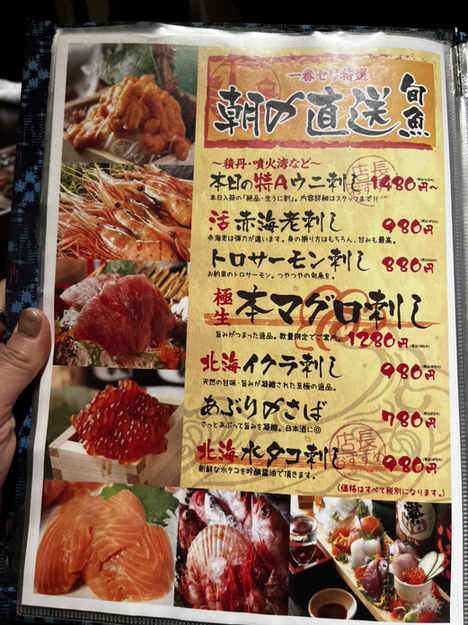 一番セリ特選
朝〆直送
旬魚
～積丹・噴火湾など～
本日の特Aウニ刺し 1480円～
本日入荷の「絶品・生うに刺」。内容詳細はスタッフまで!!
店長おすすめ
活赤海老刺し 980円
赤海老は弾力が違います。身の振り方はもちろん、甘みも最高。
トロサーモン刺し 880円
お約束のトロサーモン。つやつやの旬魚を。
極生本マグロ刺し
旨みがつまった逸品。数量限定でご案内。 1280円
北海イクラ刺し 980円
天然の甘味・旨みが凝縮された至極の逸品。
あぶり〆さば 780円
さっとあぶって旨みを凝縮。日本酒に◎
北海水タコ刺し 980円
店長おすすめ
新鮮な水タコを吟醸醤油で頂きます。
(価格はすべて税別になります。)